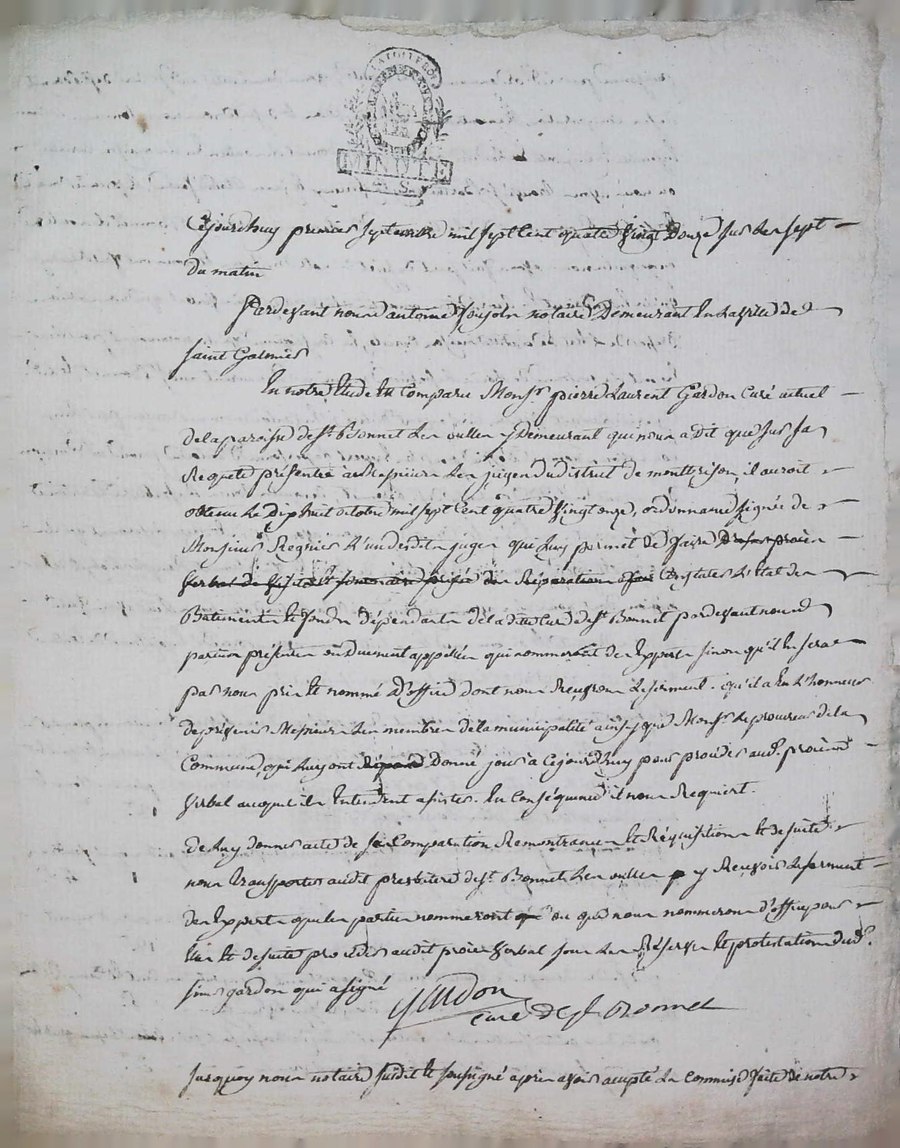 MINUTE
4. S.
Cejourdhuy premier septembre mil sept cent quatre vingt douze sur les sept
du matin
Pardevant nous antoine notaire Demeurant En la ville de
saint Galmier
En notre Etude Est Comparu Monsr. pierre Laurent Gardon Curé actuel
de la paroisse de st. Bonnet Les oulles y Demeurant qui nous a dit que sur sa
Requete présentée a Messieurs Les juges du district de montbrison, il auroit
obtenu Le Dixhuit octobre mil sept Cent quatre vingt onze, ordonnance signée de
Monsieur Regnier L'un desdits juges qui luy permet de faire Dresser procès
verbal de des Réparations Constater L'état des
Batiments et fonds dépendants de la dite Cure de st. Bonnet pardevant nous
parties présentes ou Duement appellées qui nommeroit des Experts sinon qu'il En sera
par nous pris et nommé D'office dont nous Reçevrons Le serment. qu'il a Eu L'honneur
de prévenir Messieurs Les membres de la municipalité ainsy que Monsr. Le procureur de la
Commune, qui luy ont Donné jour à Cejourdhuy pour proceder aud. procès
verbal auquel ils Entendent assister. En Conséquence il nous Requiert.
de luy donner acte de sa Comparution Remontrances et Réquisitions et de suitte
nous transporter audit presbitere de st. Bonnet Les oulles p y Reçevoir Le serment
des Experts que les parties nommeront ou que nous nommerons d'office pour
Etre et de suitte procédér audit procès verbal sous Les Réserves et protestations dud.
sieur gardon qui a signé
Gardon
Curé de st. Bonnet
Surquoy nous notaire susdit et soussigné après avoir accepté La Commission faite de notre